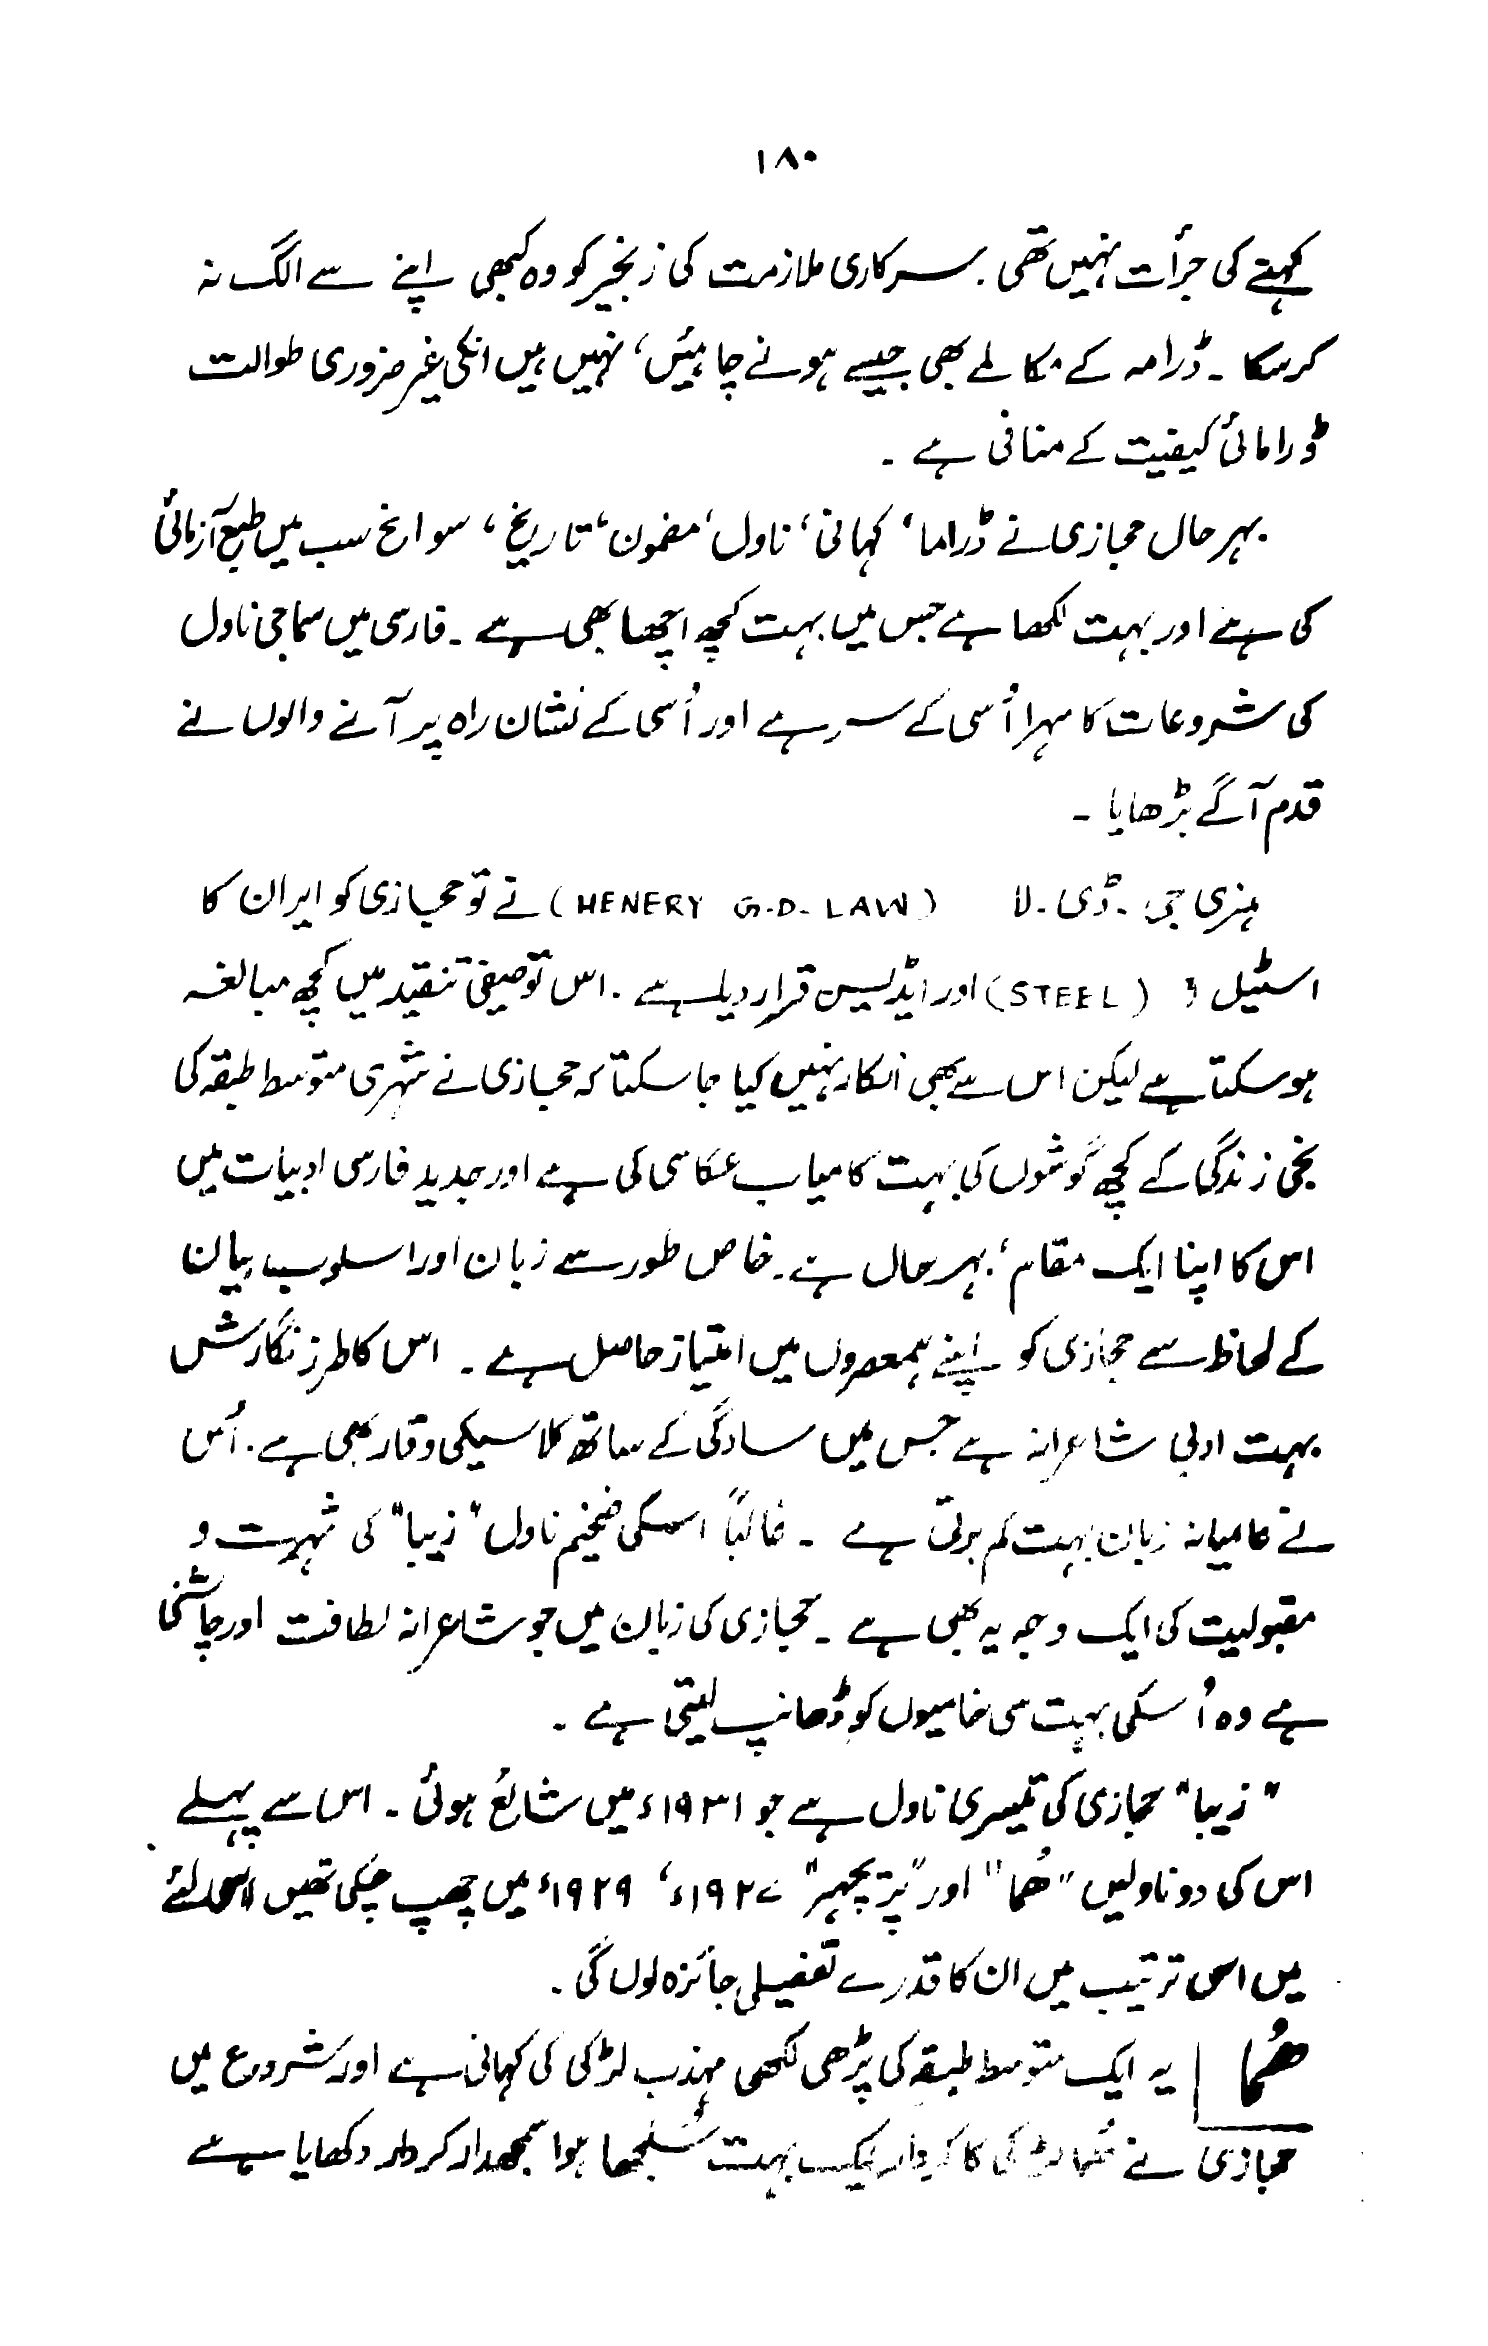 ۱۸۰
کہنے کی جرأت نہیں تھی۔ سرکاری ملازمت کی زنجیر کو وہ کبھی اپنے سے الگ نہ
کرسکا۔ ڈرامہ کے مکالمے بھی جیسے ہونے چاہئیں، نہیں ہیں انکی غیر ضروری طوالت
ڈرامائی کیفیت کے منافی ہے۔
بہرحال حجازی نے ڈراما، کہانی، ناول، مضمون، تاریخ، سوانح سب میں طبع آزمائی
کی ہے اور بہت لکھا ہے جس میں بہت کچھ اچھا بھی ہے۔ فارسی میں سماجی ناول
کی شروعات کا سہرا اُسی کے سر ہے اور اُسی کے نشان راہ پر آنے والوں نے
قدم آگے بڑھایا۔
ہنری جی۔ ڈی۔ لا (HENERY G.D. LAW) نے تو حجازی کو ایران کا
اسٹیل (STEEL) اور ایڈیسن قرار دیا ہے۔ اس توصیفی تنقید میں کچھ مبالغہ
ہو سکتا ہے لیکن اس سے بھی انکار نہیں کیا جا سکتا کہ حجازی نے شہری متوسط طبقہ کی
نجی زندگی کے کچھ گوشوں کی بہت کامیاب عکاسی کی ہے اور جدید فارسی ادبیات میں
اس کا اپنا ایک مقام، بہرحال ہے۔ خاص طور سے زبان اور اسلوب بیان
کے لحاظ سے حجازی کو اپنے ہمعصروں میں امتیاز حاصل ہے۔ اس کا طرز نگارش
بہت ادبی شاعرانہ ہے جس میں سادگی کے ساتھ کلاسیکی وقار بھی ہے۔ اُس
نے عامیانہ زبان بہت کم برتی ہے۔ غالباً اسکی ضخیم ناول "زیبا" کی شہرت و
مقبولیت کی ایک وجہ یہ بھی ہے۔ حجازی کی زبان میں جو شاعرانہ لطافت اور چاشنی
ہے وہ اُسکی بہت سی خامیوں کو ڈھانپ لیتی ہے۔
"زیبا" حجازی کی تیسری ناول ہے جو ۱۹۳۱ء میں شائع ہوئی۔ اس سے پہلے
اس کی دو ناولیں "ھُما" اور "پریچہر" ۱۹۲۷ء، ۱۹۲۹ء میں چھپ چکی تھیں اس لئے
میں اس ترتیب میں ان کا قدرے تفصیلی جائزہ لوں گی۔
ھُما | یہ ایک متوسط طبقہ کی پڑھی لکھی مہذب لڑکی کی کہانی ہے اور شروع میں
حجازی نے ھُما لڑکی کا کردار ایک بہت سُلجھا ہوا سمجھدار کردار دکھایا ہے